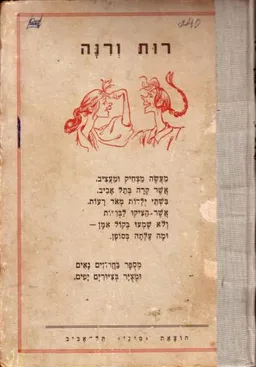 240
רות ורנה
מעשה מצחיק ומעציב,
אשר קרה בתל אביב,
בשתי ילדות מאד רעות,
אשר הציקו לבריות
ולא שמעו בקול אמן —
ומה עלתה בסופן.
מספר בחרוזים נאים
ומציר בציורים יפים.
תל־אביב